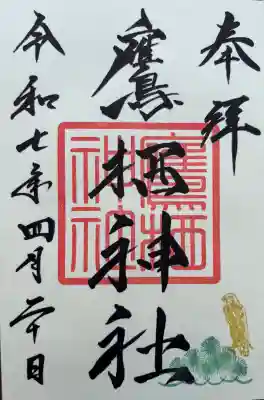 奉拝
鷹栖神社
令和七年四月二十日
鷹栖
神社